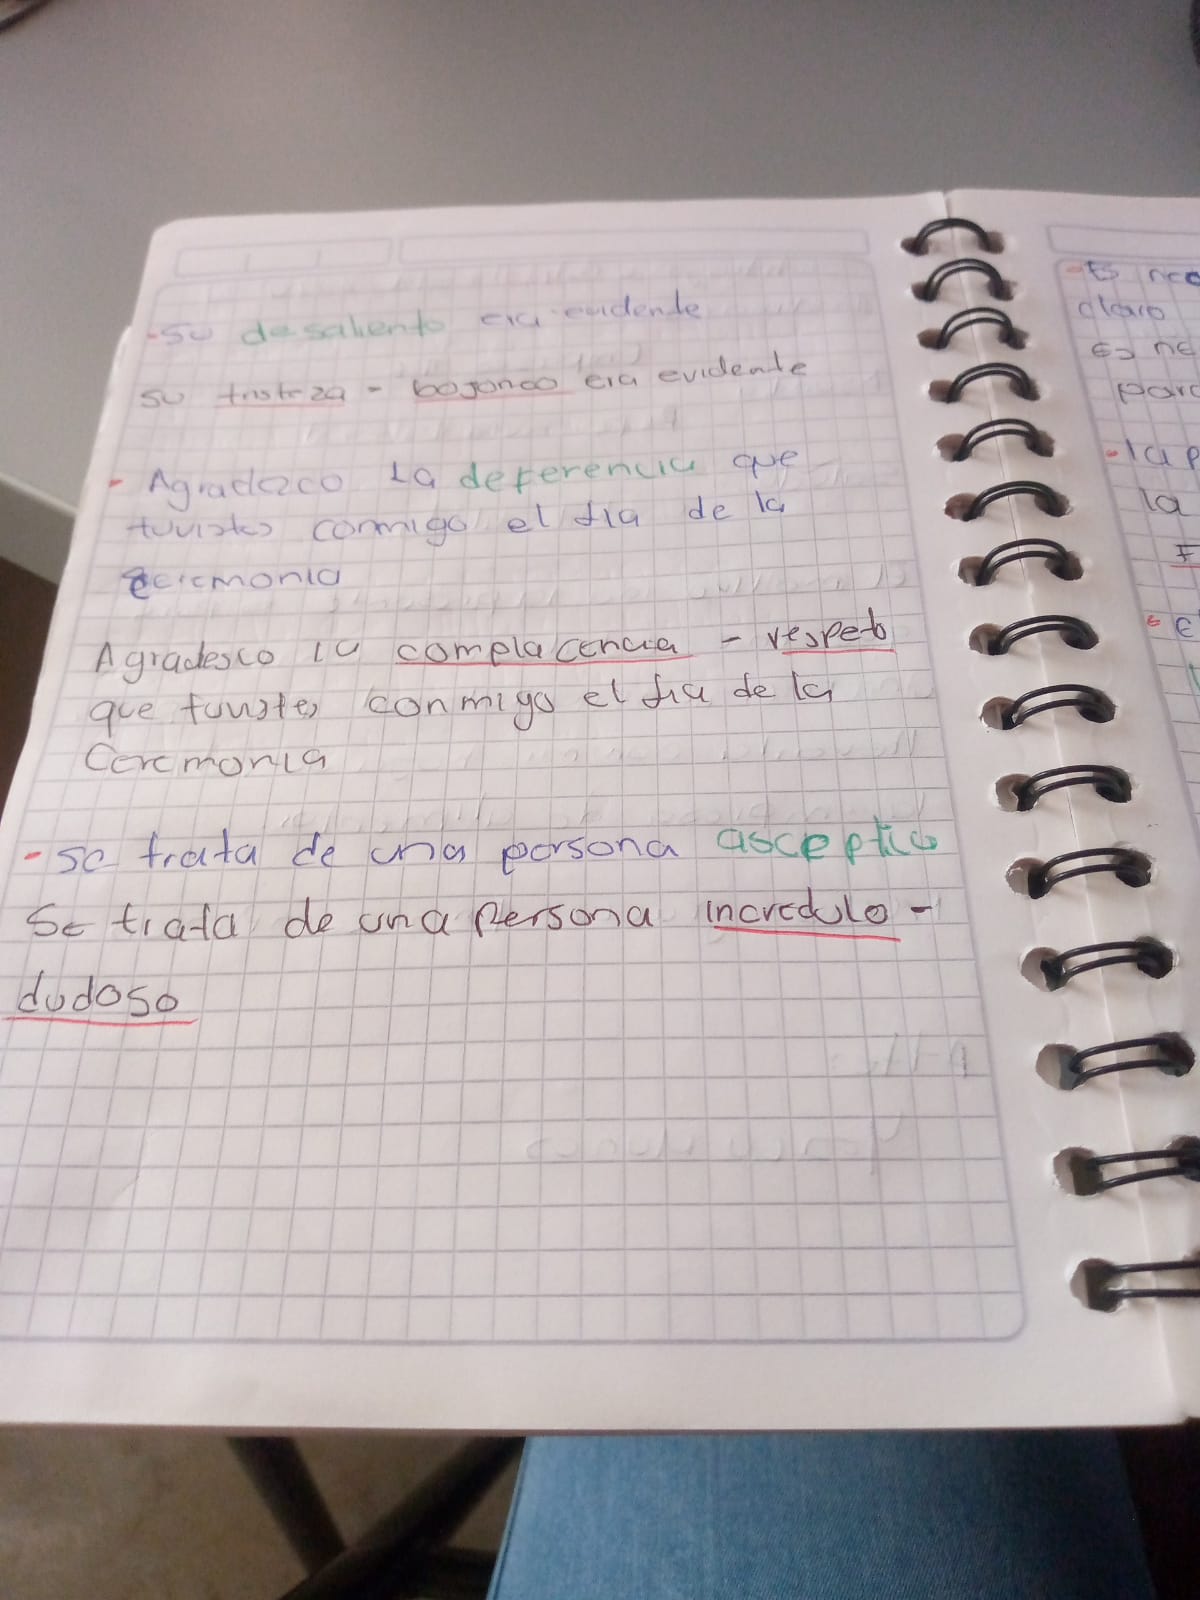 - Su desaliento era evidente
su tristeza - bajoneo era evidente
- Agradezco la deferencia que
tuvistes conmigo el dia de la
ceremonia
Agradesco la complacencia - respeto
que tuvistes conmigo el dia de la
Ceremonia
- Se trata de una persona asceptico
Se trata de una persona incredulo -
dudoso
- Es nec
claro
Es ne
para
- la p
la